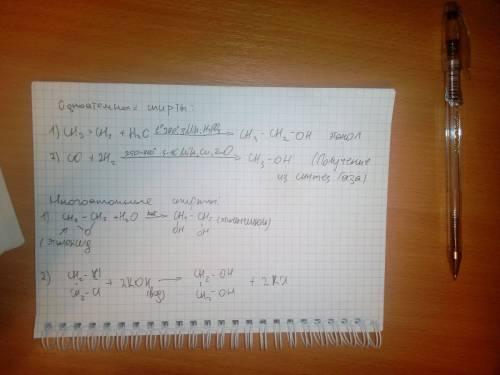 Одноатомные спирты:
1) CH₂=CH₂ + H₂O → CH₃-CH₂-OH
2) CO + 2H₂ → CH₃-OH (Получение
из синтез газа)
Многоатомные спирты:
1) CH₂-CH₂ + H₂O → CH₂-CH₂ (этиленгликоль)
O OH OH
(этиленоксид
2) CH₂-Cl CH₂-OH
+ 2KOH → + 2KCl
CH₂-Cl (вод) CH₂-OH